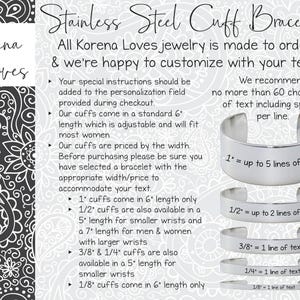 Stainless Steel Cuff
All Korena Loves jewelry is made to
& we're happy to customize with your
Your special instructions should be
added to the personalization field
provided during checkout.
Our cuffs come in a standard 6"
length which is adjustable and will fit
most women.
Our cuffs are priced by the width.
Before purchasing please be sure you
have selected a bracelet with the
appropriate width/price to
accommodate your text.
1" cuffs come in 6" length only
1/2" cuffs are also available in a
5" length for smaller wrists and
a 7" length for men & women
with larger wrists
3/8" & 1/4" cuffs are also
available in a 5" length for
smaller wrists
1/8" cuffs come in 6" length only
We recommen
no more than 60 cha
of text including s
per line.
1" = up to 5 lines of
1/2" = up to 2 lines of
3/8" = 1 line of text
1/4" = 1 line of text
1/8" = 1 line of text